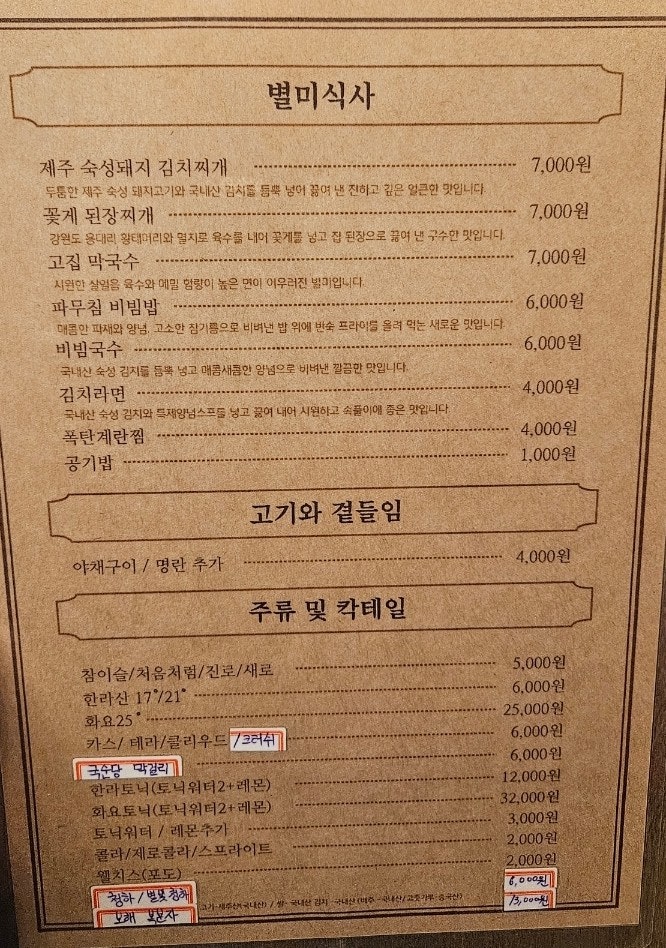 별미식사
제주 숙성돼지 김치찌개 7,000원
두툼한 제주 숙성 돼지고기와 국내산 김치를 듬뿍 넣어 끓여 낸 진하고 깊은 얼큰한 맛입니다.
꽃게 된장찌개 7,000원
강원도 용대리 황태머리와 멸치로 육수를 내어 꽃게를 넣고 집 된장으로 끓여 낸 구수한 맛입니다.
고집 막국수 7,000원
시원한 살얼음 육수와 메밀 함량이 높은 면이 어우러진 별미입니다.
파무침 비빔밥 6,000원
매콤한 파재와 양념, 고소한 참기름으로 비벼낸 밥 위에 반숙 프라이를 올려 먹는 새로운 맛입니다.
비빔국수 6,000원
국내산 숙성 김치를 듬뿍 넣고 매콤새콤한 양념으로 비벼낸 깔끔한 맛입니다.
김치라면 4,000원
국내산 숙성 김치와 특제양념스프를 넣고 끓여 내어 시원하고 속풀이에 좋은 맛입니다.
폭탄계란찜 4,000원
공기밥 1,000원
고기와 곁들임
야채구이 / 명란 추가 4,000원
주류 및 칵테일
참이슬/처음처럼/진로/새로 5,000원
한라산 17°/21° 6,000원
화요25° 25,000원
카스/ 테라/클라우드 /크러쉬 6,000원
국순당 막걸리 6,000원
한라토닉(토닉워터2+레몬) 12,000원
화요토닉(토닉워터2+레몬) 32,000원
토닉워터 / 레몬추가 3,000원
콜라/제로콜라/스프라이트 2,000원
웰치스(포도) 2,000원
청하 / 별빛청하 6,000원
고기-제주산(국내산) / 쌀 - 국내산 김치 - 국내산 (배추 - 국내산/고춧가루-중국산)
보해 복분자 13,000원